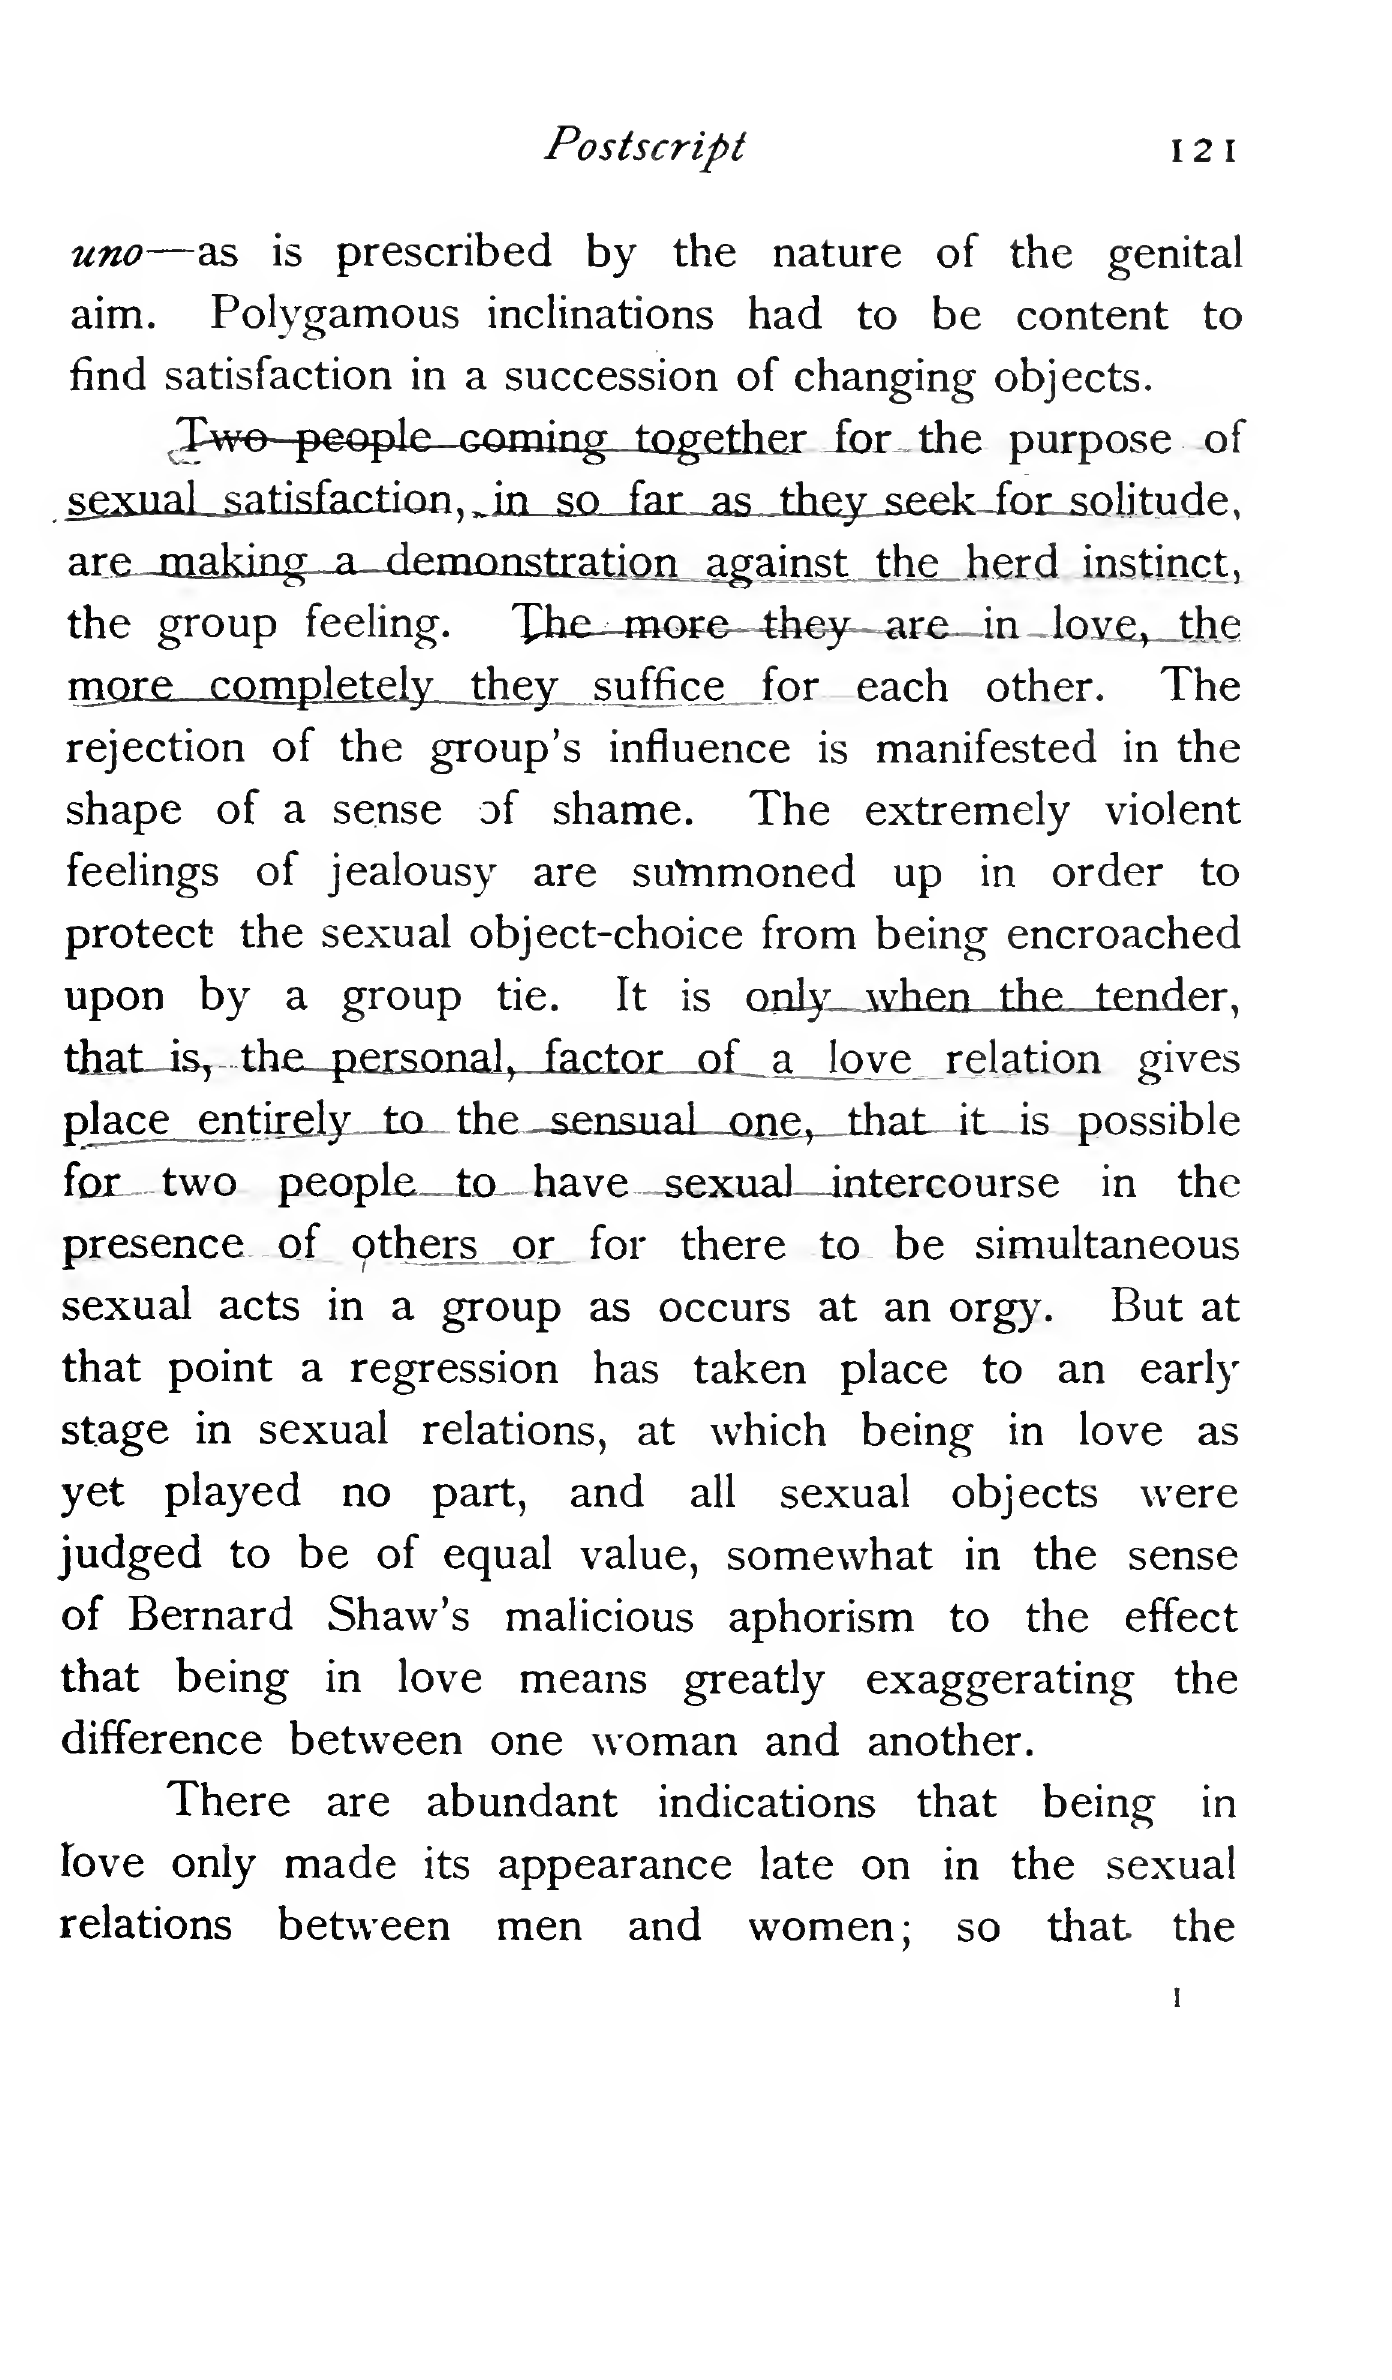 Postscript 121
uno—as is prescribed by the nature of the genital
aim. Polygamous inclinations had to be content to
find satisfaction in a succession of changing objects.
Two people coming together for the purpose of
sexual satisfaction, in so far as they seek for solitude,
are making a demonstration against the herd instinct,
the group feeling. The more they are in love, the
more completely they suffice for each other. The
rejection of the group's influence is manifested in the
shape of a sense of shame. The extremely violent
feelings of jealousy are summoned up in order to
protect the sexual object-choice from being encroached
upon by a group tie. It is only when the tender,
that is, the personal, factor of a love relation gives
place entirely to the sensual one, that it is possible
for two people to have sexual intercourse in the
presence of others or for there to be simultaneous
sexual acts in a group as occurs at an orgy. But at
that point a regression has taken place to an early
stage in sexual relations, at which being in love as
yet played no part, and all sexual objects were
judged to be of equal value, somewhat in the sense
of Bernard Shaw's malicious aphorism to the effect
that being in love means greatly exaggerating the
difference between one woman and another.
There are abundant indications that being in
love only made its appearance late on in the sexual
relations between men and women; so that the
I